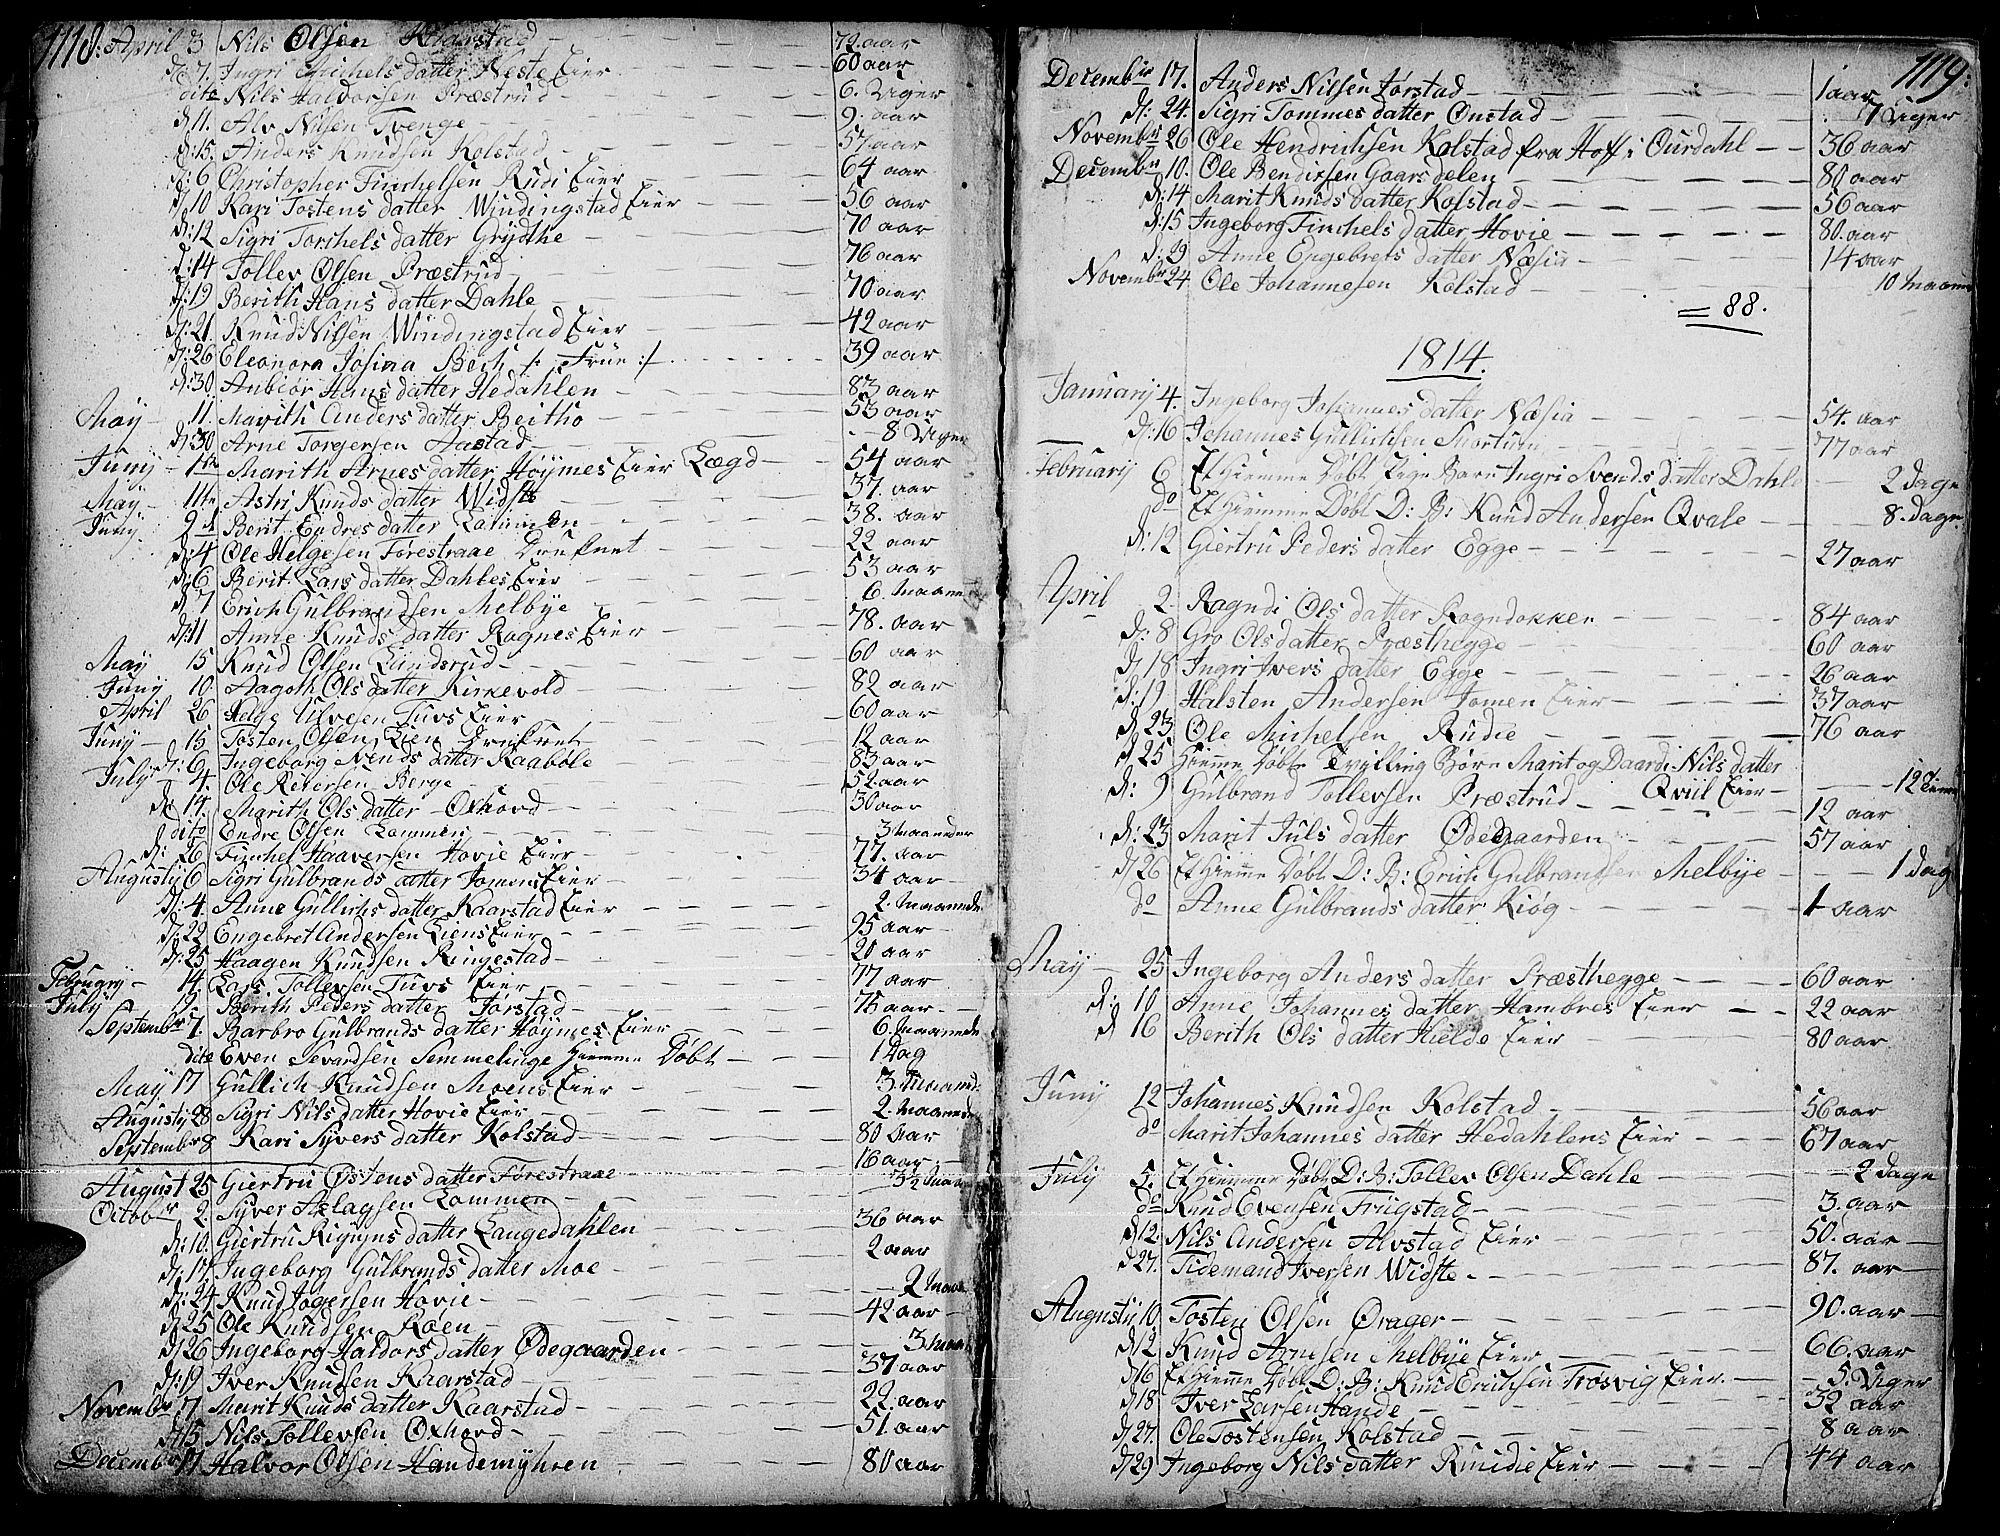 1118. April 3 Nils Olsen Kaarstad 79. aar
d: 7. Ingri Michels datter Neste Eier 60 aar
dito Nils Haldorsen Præstrud 6. Uger
d: 11. Alv Nilsen Tvenge 9. aar
d: 15. Anders Knudsen Kolstad 57 aar
d: 6 Christopher Finchelsen Rudi Eier 64 aar
d: 10 Kari Tostens datter Windingstad Eier 56 aar
d: 12 Sigri Torchels datter Grydthe 70 aar
d: 14 Tollev Olsen Præstrud 76 aar
d: 19 Berith Hans datter Dahle 70 aar
d: 21. Knud Nilsen Windingstad Eier 42 aar
d: 26 Eleonora Josina Bech /: Frue :/ 39 aar
d: 30 Anbiør Hans datter Hedahlen 83 aar
May 11. Marith Anders datter Beitho 53 aar
d: 30 Arne Torgersen Aastad 8 Uger
Juny 1te Marith Arnes datter Høymes Eier Lægd 54 aar
May 11te Astri Knuds datter Widste 37. aar
Juny 2d Berit Endres datter Lommen 38. aar
d: 4 Ole Helgesen Førestraae Druknet 22 aar
d: 6 Berit Lars datter Dahles Eier 53 aar
d: 7 Erich Gulbrandsen Melbye 6. maaned
d: 11 Anne Knuds datter Rognes Eier 78. aar
May 15 Knud Olsen Lundsrud 60 aar
Juny 10. Aagoth Ols datter Kirkevold 82 aar
April 26 Helge Ulvesen Tuvs Eier 60 aar
Juny 15 Tosten Olsen Lien Druknet 12 aar
d: 6 Ingeborg Svends datter Raabøle 83 aar
July 4. Ole Petersen Berge 52 aar
d: 14. Marith Ols datter Oxhovd 30 aar
dito Endre Olsen Lommen 3 maaneder
d: 26 Finchel Haaversen Hovie Eier 77. aar
Augusty 6 Sigri Gulbrands datter Jomens Eier 34 aar
d: 4. Anne Gullichs datter Kaarstad Eier 2. maanede
d: 22 Engebret Andersen Liens Eier 95 aar
d: 25 Haagen Knudsen Ringestad 20 aar
Februay 14. Lars Tollevsen Tuvs Eier 77 aar
July 19 Berith Peders datter Jørstad 78 aar
Septembr 7. Barbro Gulbrands datter Høymes Eier 6. maanede
dito Even Sevardsen Semmelinge Hiemme Døbt 1 Dag
May 17 Gullich Knudsen Moens Eier 3. maaned
Augusty 28 Sigri Nils datter Hovie Eier 2. maanede
Septembr 8 Kari Syvers datter Kolstad 80 aar
August 25 Giertru Østens datter Førestraae 16 aar
Octobr 2. Syver Aslagsen Lommen 3½ maan
d: 10. Giertru datter Langedahlen 36 aar
d: 17. Ingeborg Gulbrands datter Moe 2 aar
d: 24 Knud Jogersen Hovie 2 maan
d: 25 Ole Knudsen Røen 42 aar
d: 26 Ingeborg Haldors datter Ødegaarden 3 maan
d: 19 Iver Knudsen Kaarstad 37 aar
Novembr 17 Marit Knuds datter Kaarstad 22. aar
d: 15 Nils Tollevsen Oxhovd 51 aar
Decembr 17 Halvor Olsen Handemyhren 80 aar
1119.
Decembr 17. Anders Nilsen Jørstad 1 aar
d: 24. Sigri Tommes datter Onstad 7 Uger
Novembr 26 Ole Hendrichsen Kolstad fra Hoff i Ourdahl 36 aar
Decembr 10. Ole Bendixsen Gaarsdelen 80 aar
d: 14 Marit Knuds datter Kolstad 56 aar
d: 15 Ingeborg Finchels datter Hovie 80. aar
d: 9 Anne Engebrets datter Næsia 14 aar
Novembr 24 Ole Johannesen Kolstad 10 maan
= 88.
1814.
January 4. Ingeborg Johannes datter Næsia 54. aar
d: 16 Johannes Gullichsen Snortum 77 aar
February 6 Et Hiemme Døbt Pige Barn Ingri Svends datter Dahle 2 dage
do Et Hiemme Døbt D: B: Knud Andersen Qvale 8. dage
d: 12 Giertru Peders datter Egge 27 aar
April 2. Ragndi Ols datter Rogndokken 84 aar
d: 8 Gro Ols datter Præsthegge 60 aar
d: 18 Ingri Ivers datter Egge 26 aar
d: 19 Halsten Andersen Jomen Eier 37 aar
d: 23 Ole Michelsen Rudie 76 aar
d: 25 Hiemme Døbte Tvilling Børn Marit og Daardi Nils datter
Qviil Eier 12 Time
d: 9 Gulbrand Tollevsen Præstrud 12 aar
d: 23 Marit Juls datter Ødegaarden 57 aar
d: 26 Et Hiemme Døbt D: B: Erich Gulbrandsen Melbye 1 dag
do Anne Gulbrands datter Kiøg 1 aar
May 25 Ingeborg Anders datter Præsthegge 60 aar
d: 10 Anne Johannes datter Hambres Eier 22 aar
d 16 Berith Ols datter Hielde Eier 80 aar
Juny 12 Johannes Knudsen Kolstad 56 aar
do Marit Johannes datter Hedahlens Eier 67 aar
July 5. Et Hiemme Døbt D: B: Tollev Olsen Dahle 2 dage
do Knud Evensen Trugstad 3. aar
d 12. Nils Andersen Alvstad Eier 50. aar
d 27. Tidemand Iversen Widste 87. aar
Augusty 10. Tosten Olsen Orager 90. aar
d 12 Knud Arnesen Melbye Eier 66. aar
d 16 Et Hiemme Døbt D: B: Knud Erichsen Trosvig Eier. 5. Uger
d 18 Iver Larsen Hande 32 aar
d 27. Ole Tostensen Kolstad 8 aar
d 29 Ingeborg Nils datter Rudie Eier 44 aar